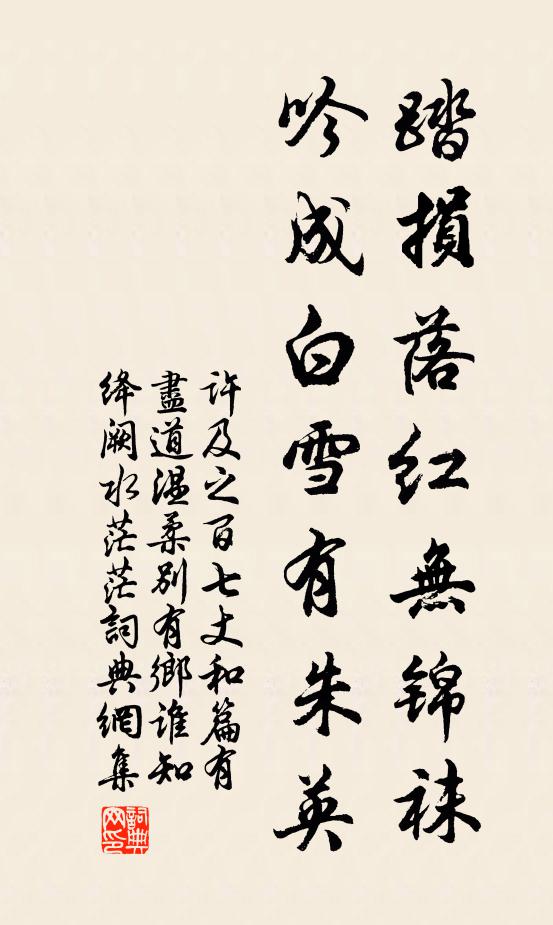 踏損落紅無錦襪
吟成白雪有朱英
許及之百七丈和篇有
盡道溫柔別有鄉誰知
絳闕水茫茫詞典網集
詞典
网印